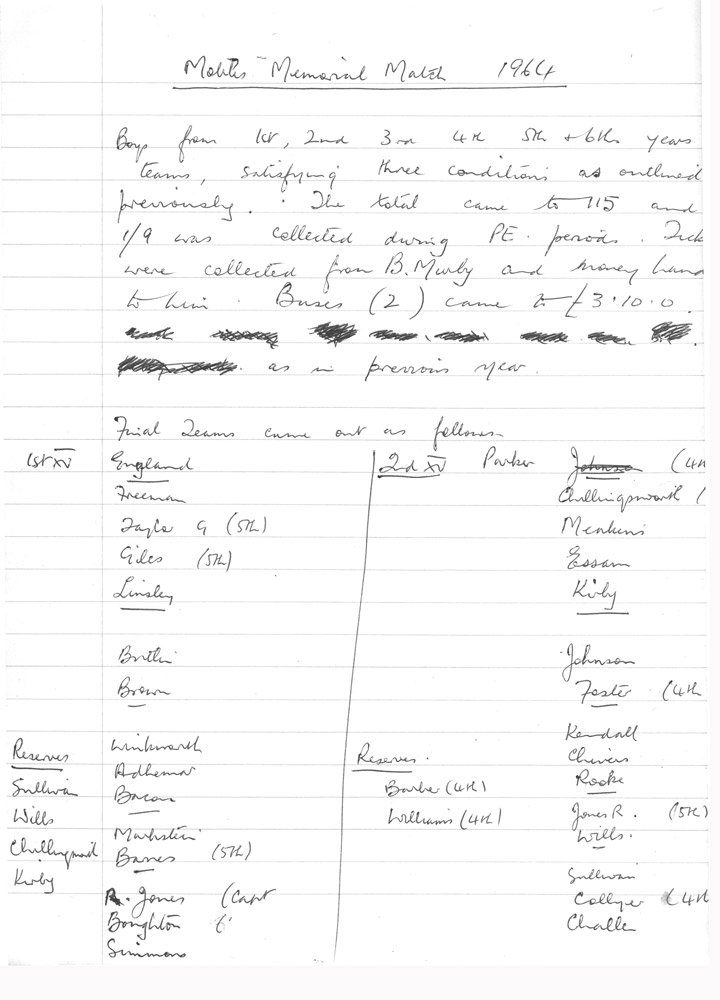 Memorial Match 1964
Boys from 1st, 2nd 3rd 4th 5th + 6th years
teams, satisfying three conditions as outlined
previously. The total came to 115 and
1/9 was collected during PE. periods.
were collected from B. Murby and money hand
to him. Buses (2) came to £3.10.0.
as in previous year.
Final Teams came out as follows-
1st XV
England
Freeman
Taylor G (5th)
Giles (5th)
Linsley
Brown
Winkworth
Adhemar
Bacon
(5th)
R. Jones (Capt
Boughton
Simmons
Reserves
Sullivan
Wills
Kirby
2nd XV Parker (4th
Chillingsworth (
Meakins
Essam
Kirby
Johnson
Foster (4th
Kendall
Chivers
Rooke
Jones R. (5th)
Wills.
Sullivan
Collyer (4th
Reserves.
Barber (4th)
Williams (4th)